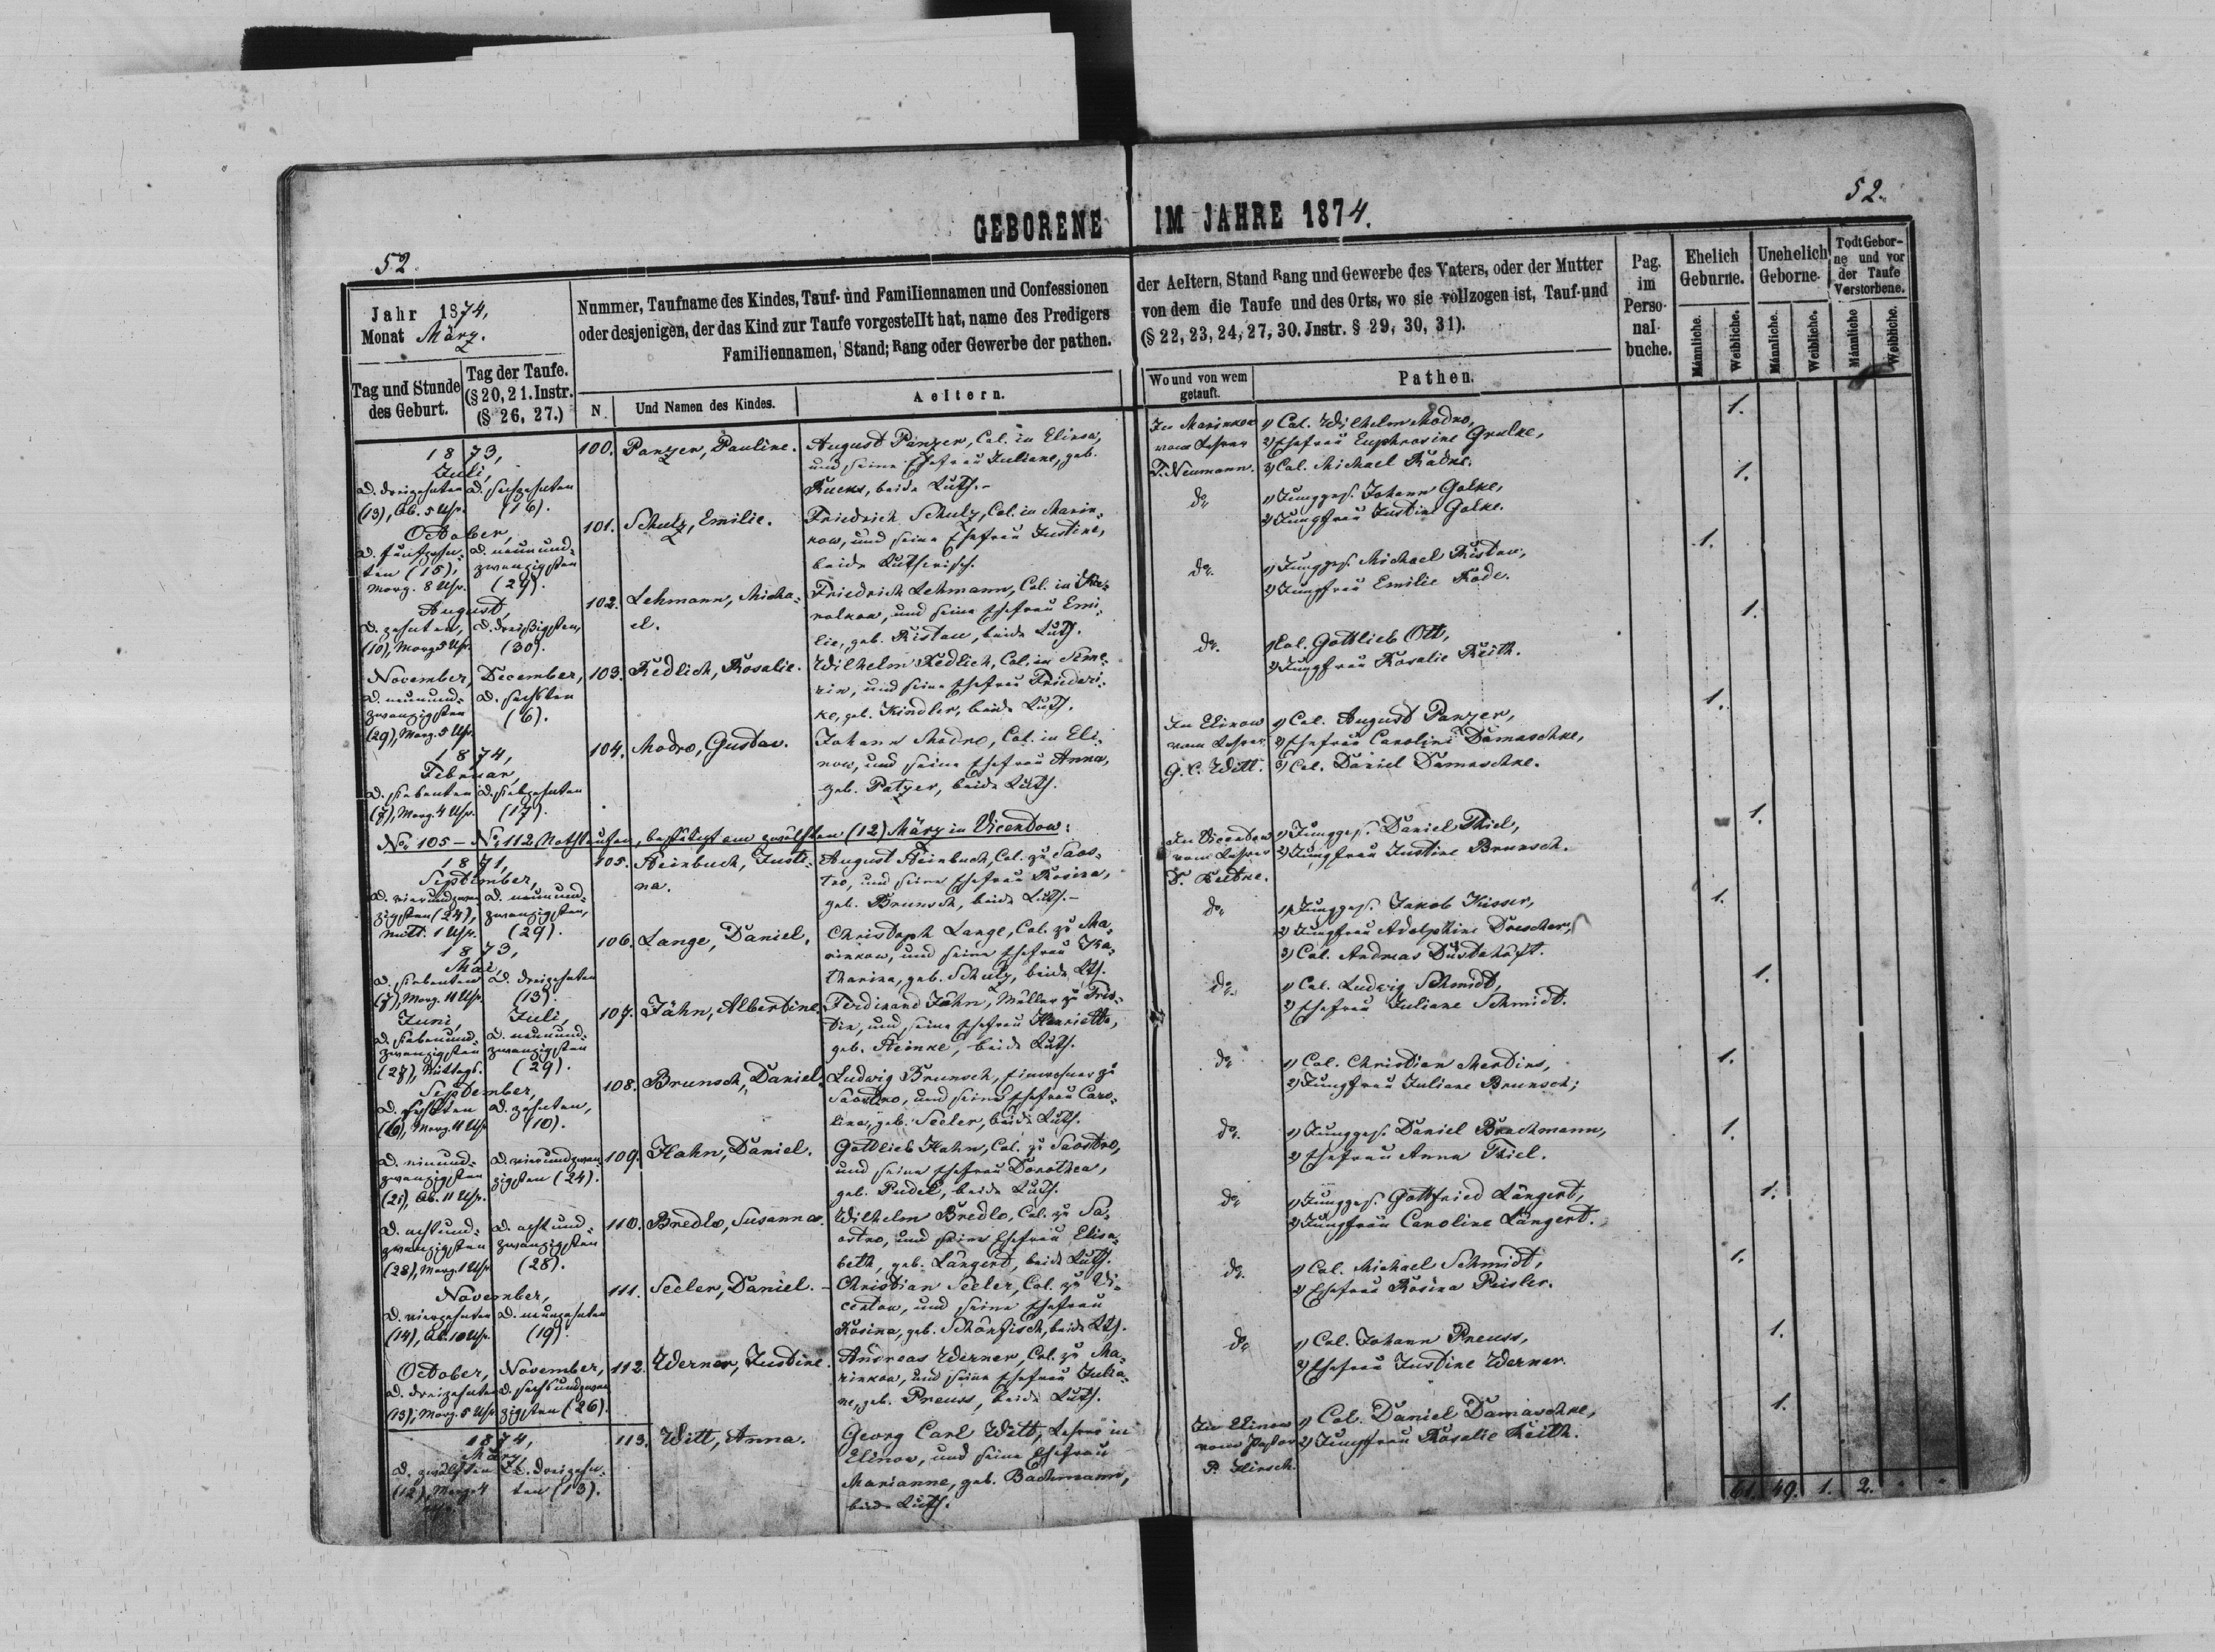 52.
GEBORENE IM JAHRE 1874.
52
Jahr 1874,
Monat März.
Tag und Stunde
des Geburt.
Tag der Taufe.
(§ 20, 21. Instr.
(§ 26, 27.)
Nummer, Taufname des Kindes, Tauf- und Familiennamen und Confessionen
oder desjenigen, der das Kind zur Taufe vorgestellt hat, name des Predigers
Familiennamen, Stand; Rang oder Gewerbe der pathen.
N.
Und Namen des Kindes.
Aeltern.
der Aeltern, Stand Rang und Gewerbe des Vaters, oder der Mutter
von dem die Taufe und des Orts, wo sie vollzogen ist, Tauf-und
(§ 22, 23, 24, 27, 30. Jnstr. § 29, 30, 31).
Wo und von wem
getauft.
Pathen.
Pag.
im
Perso-
nal-
buche.
Ehelich
Geburne.
Unehelich
Geborne.
Todt Gebor-
ne und vor
der Taufe
Verstorbene.
Männliche.
Weibliche.
Männliche.
Weibliche.
Männliche
Weibliche.
1873,
Juli,
d. dreizehnten
(13), Ab. 5 Uhr.
d. sechzehnten
(16).
100. Panzer, Pauline.
August Panzer, Col. in Elinow,
und seine Ehefrau Juliane, geb.
Kucks, beide Luth.-
In Marinkow
vom Lehrer
D. Neumann.
1) Col. Wilhelm Modro,
2) Ehefrau Euphrosine Grulke,
3) Col. Michael Radke.
1.
October,
d. fünfzehn-
ten (15),
Morg. 8 Uhr.
d. neunund-
zwanzigsten
(29).
101. Schulz, Emilie.
Friedrich Schulz, Col. in Marin-
kow, und seine Ehefrau Justine,
beide Lutherisch.
do
1) Junggs. Johann Golke,
2) Jungfrau Justine Golke.
1.
August,
d. zehnten,
(10), Morg. 5 Uhr.
d. dreißigsten,
(30).
102. Lehmann, Micha-
el.
Friedrich Lehmann, Col. in
und seine Ehefrau Emi-
lie, geb. Ristau, beide Luth.
do.
1) Junggs. Michael Ristau,
2) Jungfrau Emilie Rode.
1.
November,
d. neunund-
zwanzigsten
(29), Morg. 5 Uhr.
December,
d. sechsten
(6).
103. Redlich, Rosalie.
Wilhelm Redlich, Col. in Sime-
rin, und seine Ehefrau Friederi-
ke, geb. Kindler, beide Luth.
do.
1) Col. Gottlieb Ott,
2) Jungfrau Rosalie Keith.
1.
1874,
Februar,
d. siebenten
(7), Morg. 4 Uhr.
d. siebzehnten
(17).
104. Modro, Gustav.
Johann Modro, Col. in Eli-
now, und seine Ehefrau Anna,
geb. Patzer, beide Luth.
In Elinow
vom Lehrer
G. C. Witt.
1) Col. August Panzer,
2) Ehefrau Caroline Damaschke,
3) Col. Daniel Damaschke.
1.
No 105 - No 112 Nothtaufen, bestätigt am zwölften (12) März in Vicentow:
1871,
September,
d. vierundzwan-
zigsten (24),
Mitt. 1 Uhr.
d. neunund-
zwanzigsten,
(29).
105. Steinbuch, Justi-
na.
August Steinbuch, Col. zu Saos-
tro, und seine Ehefrau Rosina,
geb. Brunsch, beide Luth.-
In Vicentow
vom Lehrer
1) Junggs. Daniel Thiel,
2) Jungfrau Justine Brunsch.
1.
1873,
Mai,
d. siebenten
(7), Morg. 11 Uhr.
d. dreizehnten
(13).
106. Lange, Daniel,
Christoph Lange, Col. zu Ma-
rinkow, und seine Ehefrau Ka-
tharina, geb. Schulz, beide Lth.
do
1) Junggs. Jakob Kisser,
2) Jungfrau Adolphine Drescher,
3) Col. Andreas Düsterhöft.
1.
Juni,
d. siebenund-
zwanzigsten
(27), Mittags.
Juli,
d. neunund-
zwanzigsten
(29).
107. Jahn, Albertine
Ferdinand Jahn, Müller zu Tris-
tin, und seine Ehefrau Henriette,
geb. Steinke, beide Luth.
do.
1) Col. Ludwig Schmidt,
2) Ehefrau Juliane Schmidt.
1.
September,
d. sechsten
(6), Morg. 4 Uhr
d. zehnten,
(10).
108. Brunsch, Daniel.
Ludwig Brunsch, Einwohner zu
Saostro, und seine Ehefrau Caro-
lina, geb. Seeler, beide Luth.
do
1) Col. Christian Martins,
2) Jungfrau Juliane Brunsch;
1.
d. einund-
zwanzigsten
(21), Ab. 11 Uhr.
d. vierundzwan-
zigsten (24).
109. Hahn, Daniel.
Gottlieb Hahn, Col. zu Saostro,
und seine Ehefrau Dorothea,
geb. Pudel, beide Luth.
do.
1) Junggs. Daniel Brachmann,
2) Ehefrau Anna Thiel.
1.
d. achtund-
zwanzigsten
(28), Morg. 1 Uhr
d. achtund-
zwanzigsten
(28).
110. Bredlo, Susanna.
Wilhelm Bredlo, Col. zu Sa-
ostro, und seine Ehefrau Elisa-
beth, geb. Längert, beide Luth.
do
1) Junggs. Gottfried Längert,
2) Jungfrau Caroline Längert.
1.
November,
d. vierzehnten
(14), Ab. 10 Uhr.
d. neunzehnten
(19).
111. Seeler, Daniel. -
Christian Seeler, Col. zu Vi-
centow, und seine Ehefrau
Rosina, geb. Schönfisch, beide Lth.
do.
1) Col. Michael Schmidt,
2) Ehefrau Rosina Peisler.
1.
October,
d. dreizehnten
(13), Morg. 5 Uhr
November,
d. sechsundzwan-
zigsten (26).
112. Werner, Justine.
Andreas Werner, Col. zu Ma-
rinkow, und seine Ehefrau Julia-
ne, geb. Preuss, beide Luth.
do
1) Col. Johann Preuss,
2) Ehefrau Justine Werner.
1.
1874,
März,
d. zwölften
(12), Morg. 4
d. dreizehn-
ten (13).
113. Witt, Anna.
Georg Carl Witt, Lehrer in
Elinow, und seine Ehefrau
Marianne, geb. Bachmann,
beide Luth.
In Elinow
vom Pastor
P. Hirsch.
1) Col. Daniel Damaschke,
2) Jungfrau Rosalie Keith.
1.
61. 49. 1. 2.